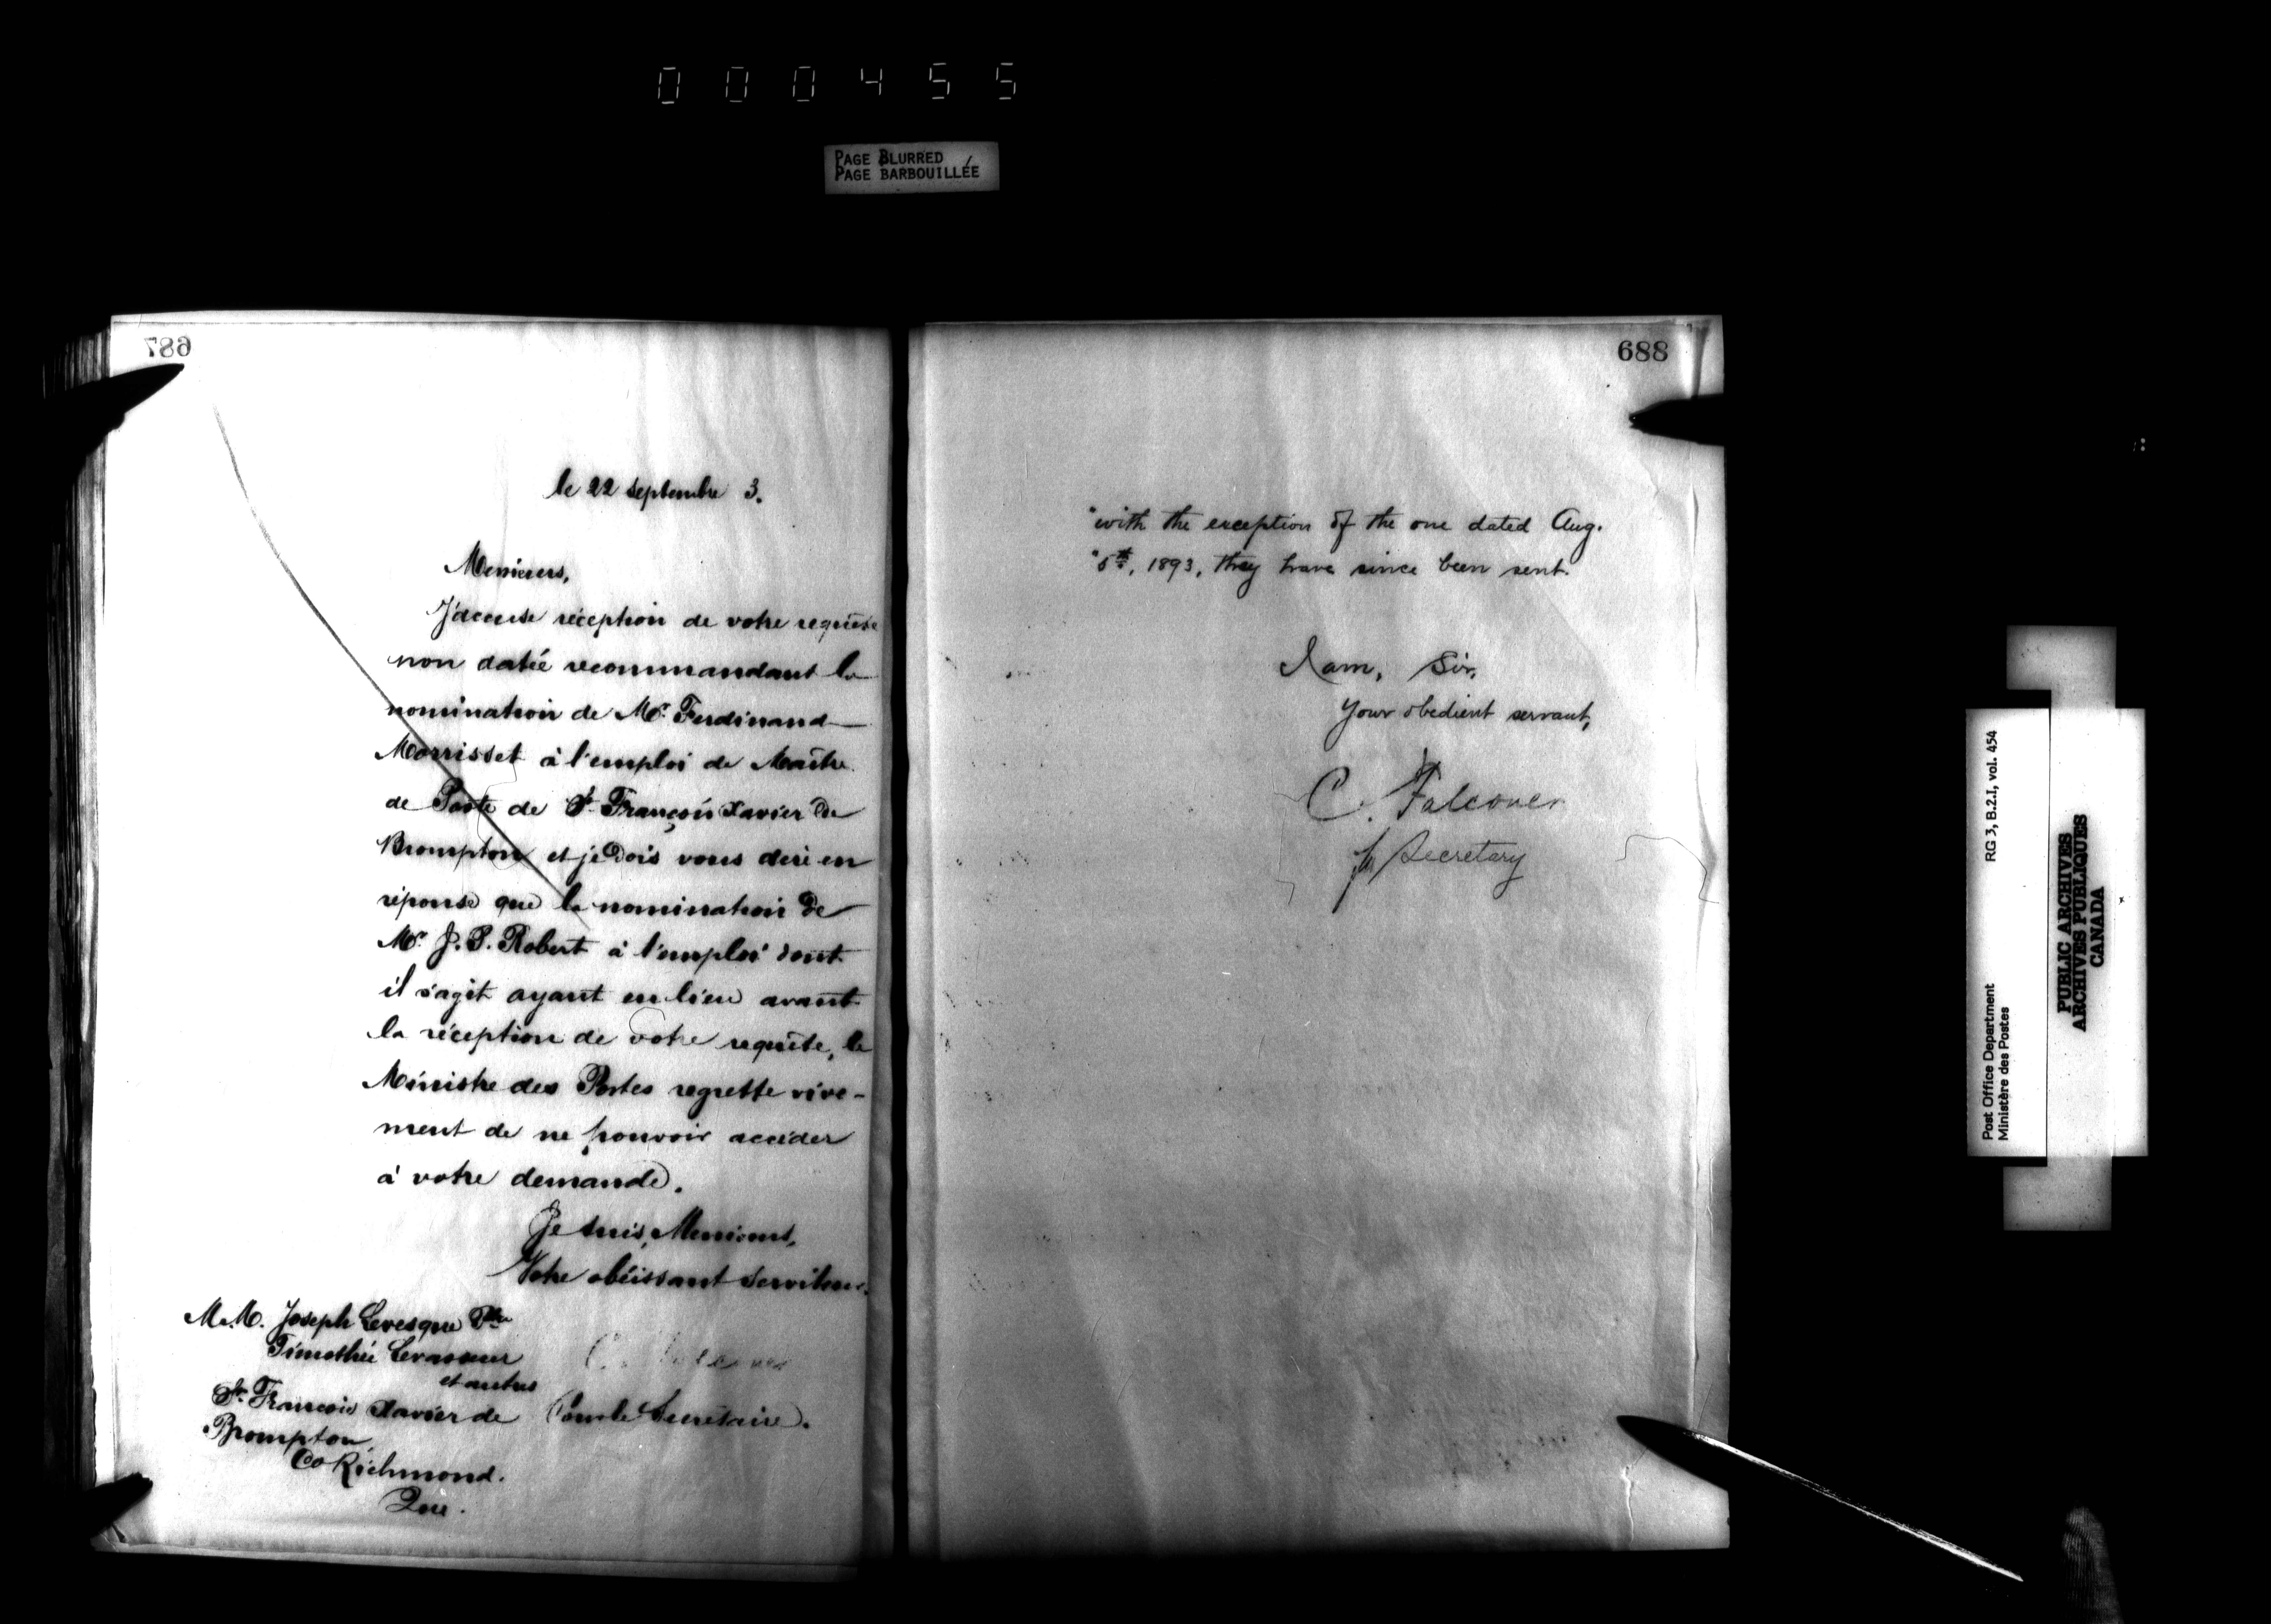 000455
PAGE BLURRED
PAGE BARBOUILLÉE
687
le 22 Septembre 3.
Messieurs,
J'accuse réception de votre requête
non datée recommandant la
nomination de Mr. Ferdinand
Morrisset à l'emploi de Maître
de Poste de St. François Xavier de
Brompton et je dois vous dire en
réponse que la nomination de
Mr. J. P. Robert à l'emploi dont
il s'agit ayant eu lieu avant
la réception de votre requête, le
Ministre des Postes regrette vive-
ment de ne pouvoir accéder
à votre demande.
Je suis, Messieurs,
Votre obéissant Serviteur.
M.M. Joseph Levesque Ptre
Timothée Levasseur
et autres
St. François Xavier de
Brompton
Co Richmond.
Que.
C. Falconer
(Pour le Secrétaire).
688
"with the exception of the one dated Aug.
"5th, 1893, they have since been sent.
I am, Sir,
Your obedient servant,
C. Falconer
fr Secretary
Post Office Department
Ministère des Postes
RG 3, B.2.I, vol. 454
PUBLIC ARCHIVES
ARCHIVES PUBLIQUES
CANADA